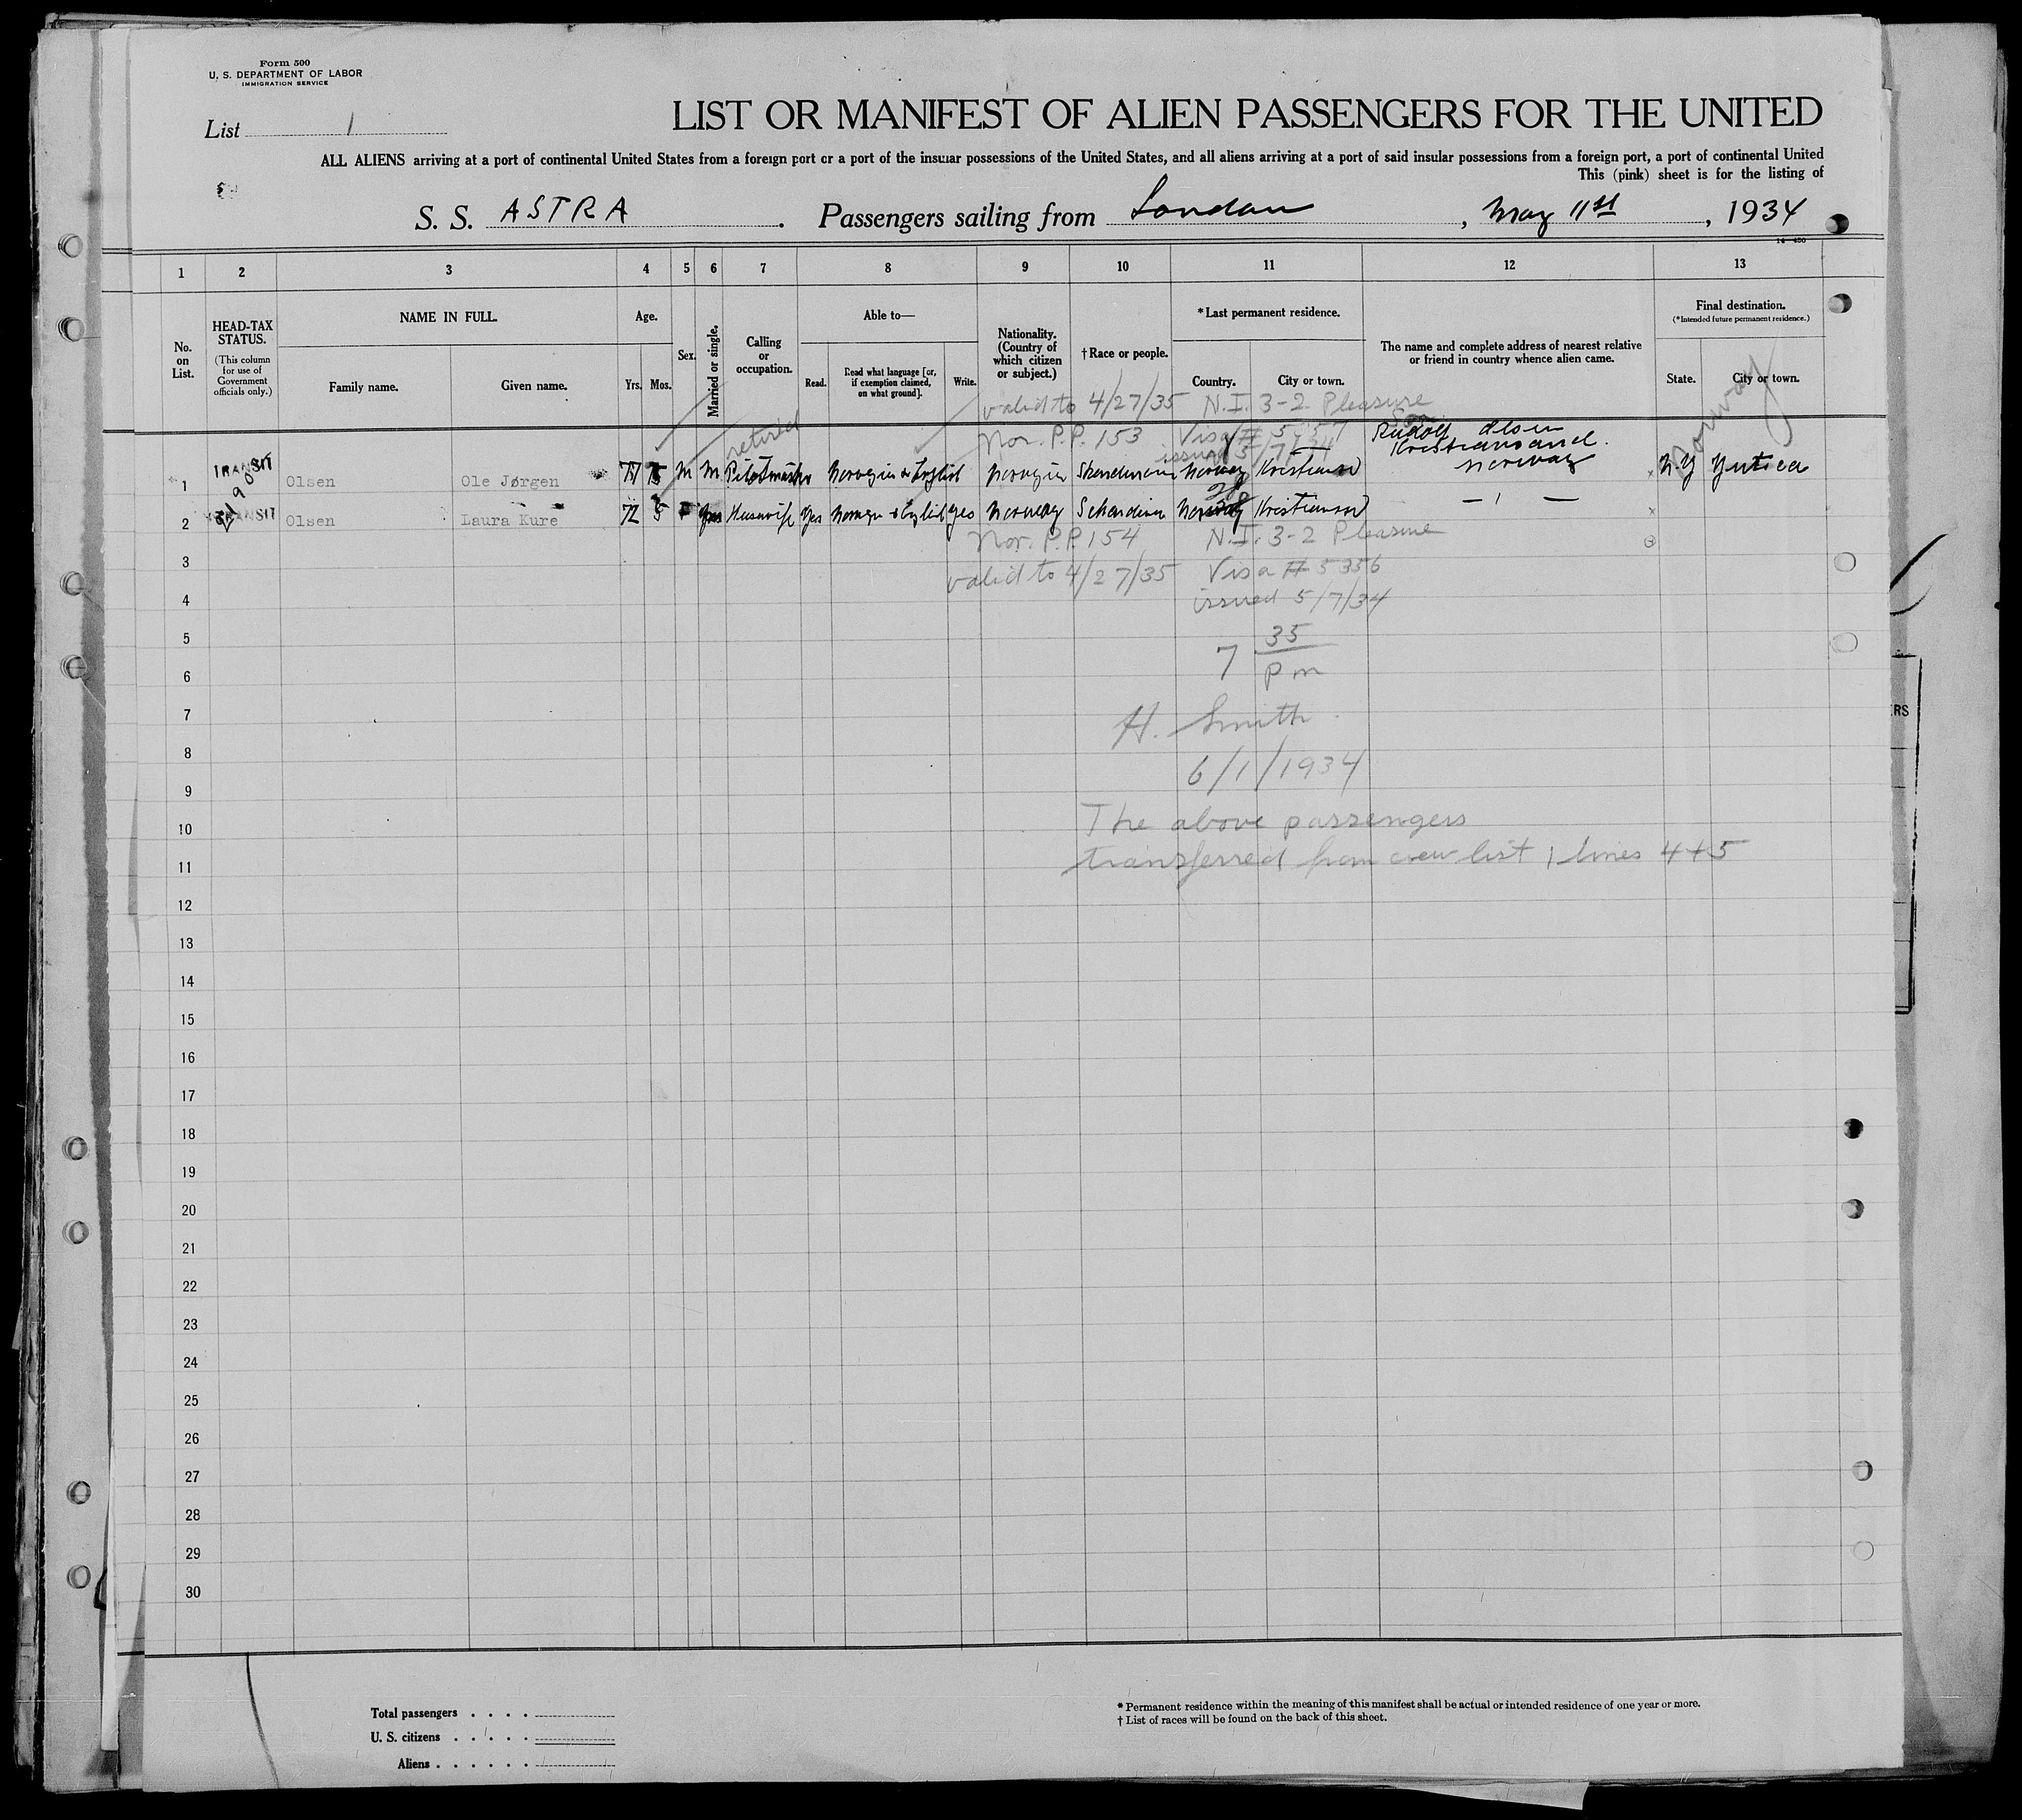 Form 500
U. S. DEPARTMENT OF LABOR
IMMIGRATION SERVICE
List 1
LIST OR MANIFEST OF ALIEN PASSENGERS FOR THE UNITED
ALL ALIENS arriving at a port of continental United States from a foreign port or a port of the insular possessions of the United States, and all aliens arriving at a port of said insular possessions from a foreign port, a port of continental United
This (pink) sheet is for the listing of
S. S. ASTRA. Passengers sailing from London, May 11st, 1934
1 2 3 4 5 6 7 8 9 10 11 12 13
No. on List.
HEAD-TAX STATUS.
(This column for use of Government officials only.)
NAME IN FULL.
Family name. Given name.
Age.
Yrs. Mos.
Sex.
Married or single.
Calling or occupation.
Able to—
Read. Read what language [or, if exemption claimed, on what ground]. Write.
Nationality. (Country of which citizen or subject.)
†Race or people.
*Last permanent residence.
Country. City or town.
The name and complete address of nearest relative or friend in country whence alien came.
Final destination.
(*Intended future permanent residence.)
State. City or town.
Norway
valid to 4/27/35 N.I. 3-2 Pleasure
retired Nor. P.P. 153 Visa # 5357 Son Rudolf Olsen
issued 5/7/34 Kristiansand.
Norway
1 TRANSIT Olsen Ole Jørgen M M Norwegian & English Norwegian Norway N.Y
2 TRANSIT Olsen Laura Kure 72 5 F Housewife Yes Yes Norway — " —
3 Nor. P.P. 154 N.I. 3-2 Pleasure
valid to 4/27/35 Visa # 5356
4 issued 5/7/34
5
7 35
6 pm
7 H. Smith
8 6/1/1934
9
10 The above passengers
11 transferred from crew list 1 lines 4+5
12
13
14
15
16
17
18
19
20
21
22
23
24
25
26
27
28
29
30
Total passengers . . . .
U. S. citizens . . . . .
Aliens . . . . . .
* Permanent residence within the meaning of this manifest shall be actual or intended residence of one year or more.
† List of races will be found on the back of this sheet.